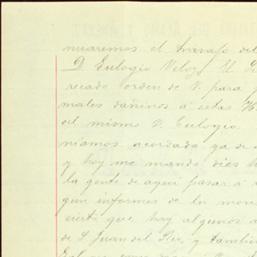 nuaremos el trabajo del
D Eulogio Veloz U. Ge
recado orden de V. para
males dañinos á estas H
el mismo D. Eulogio.
niamos acordado ya de
y hoy me manda dies h
la gente de ayer pasar á
gun informes de la mon
cierto que hay algunos a
de S. Juan del Rio, y tambien